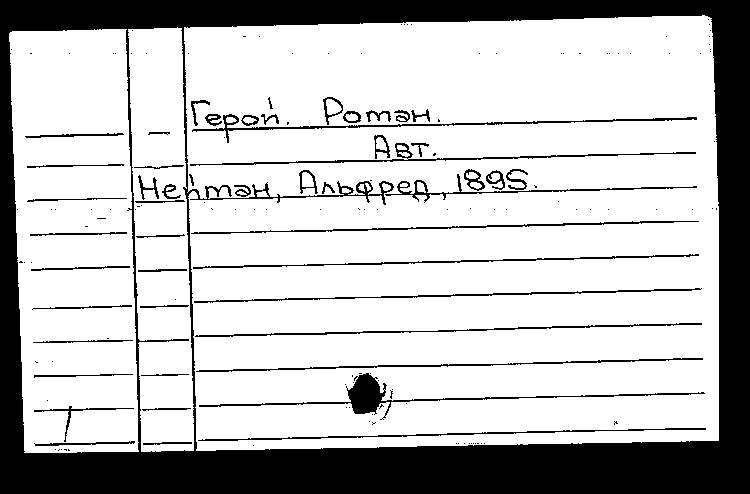 Герой. Роман.
Авт.
Нейман, Альфред, 1895.